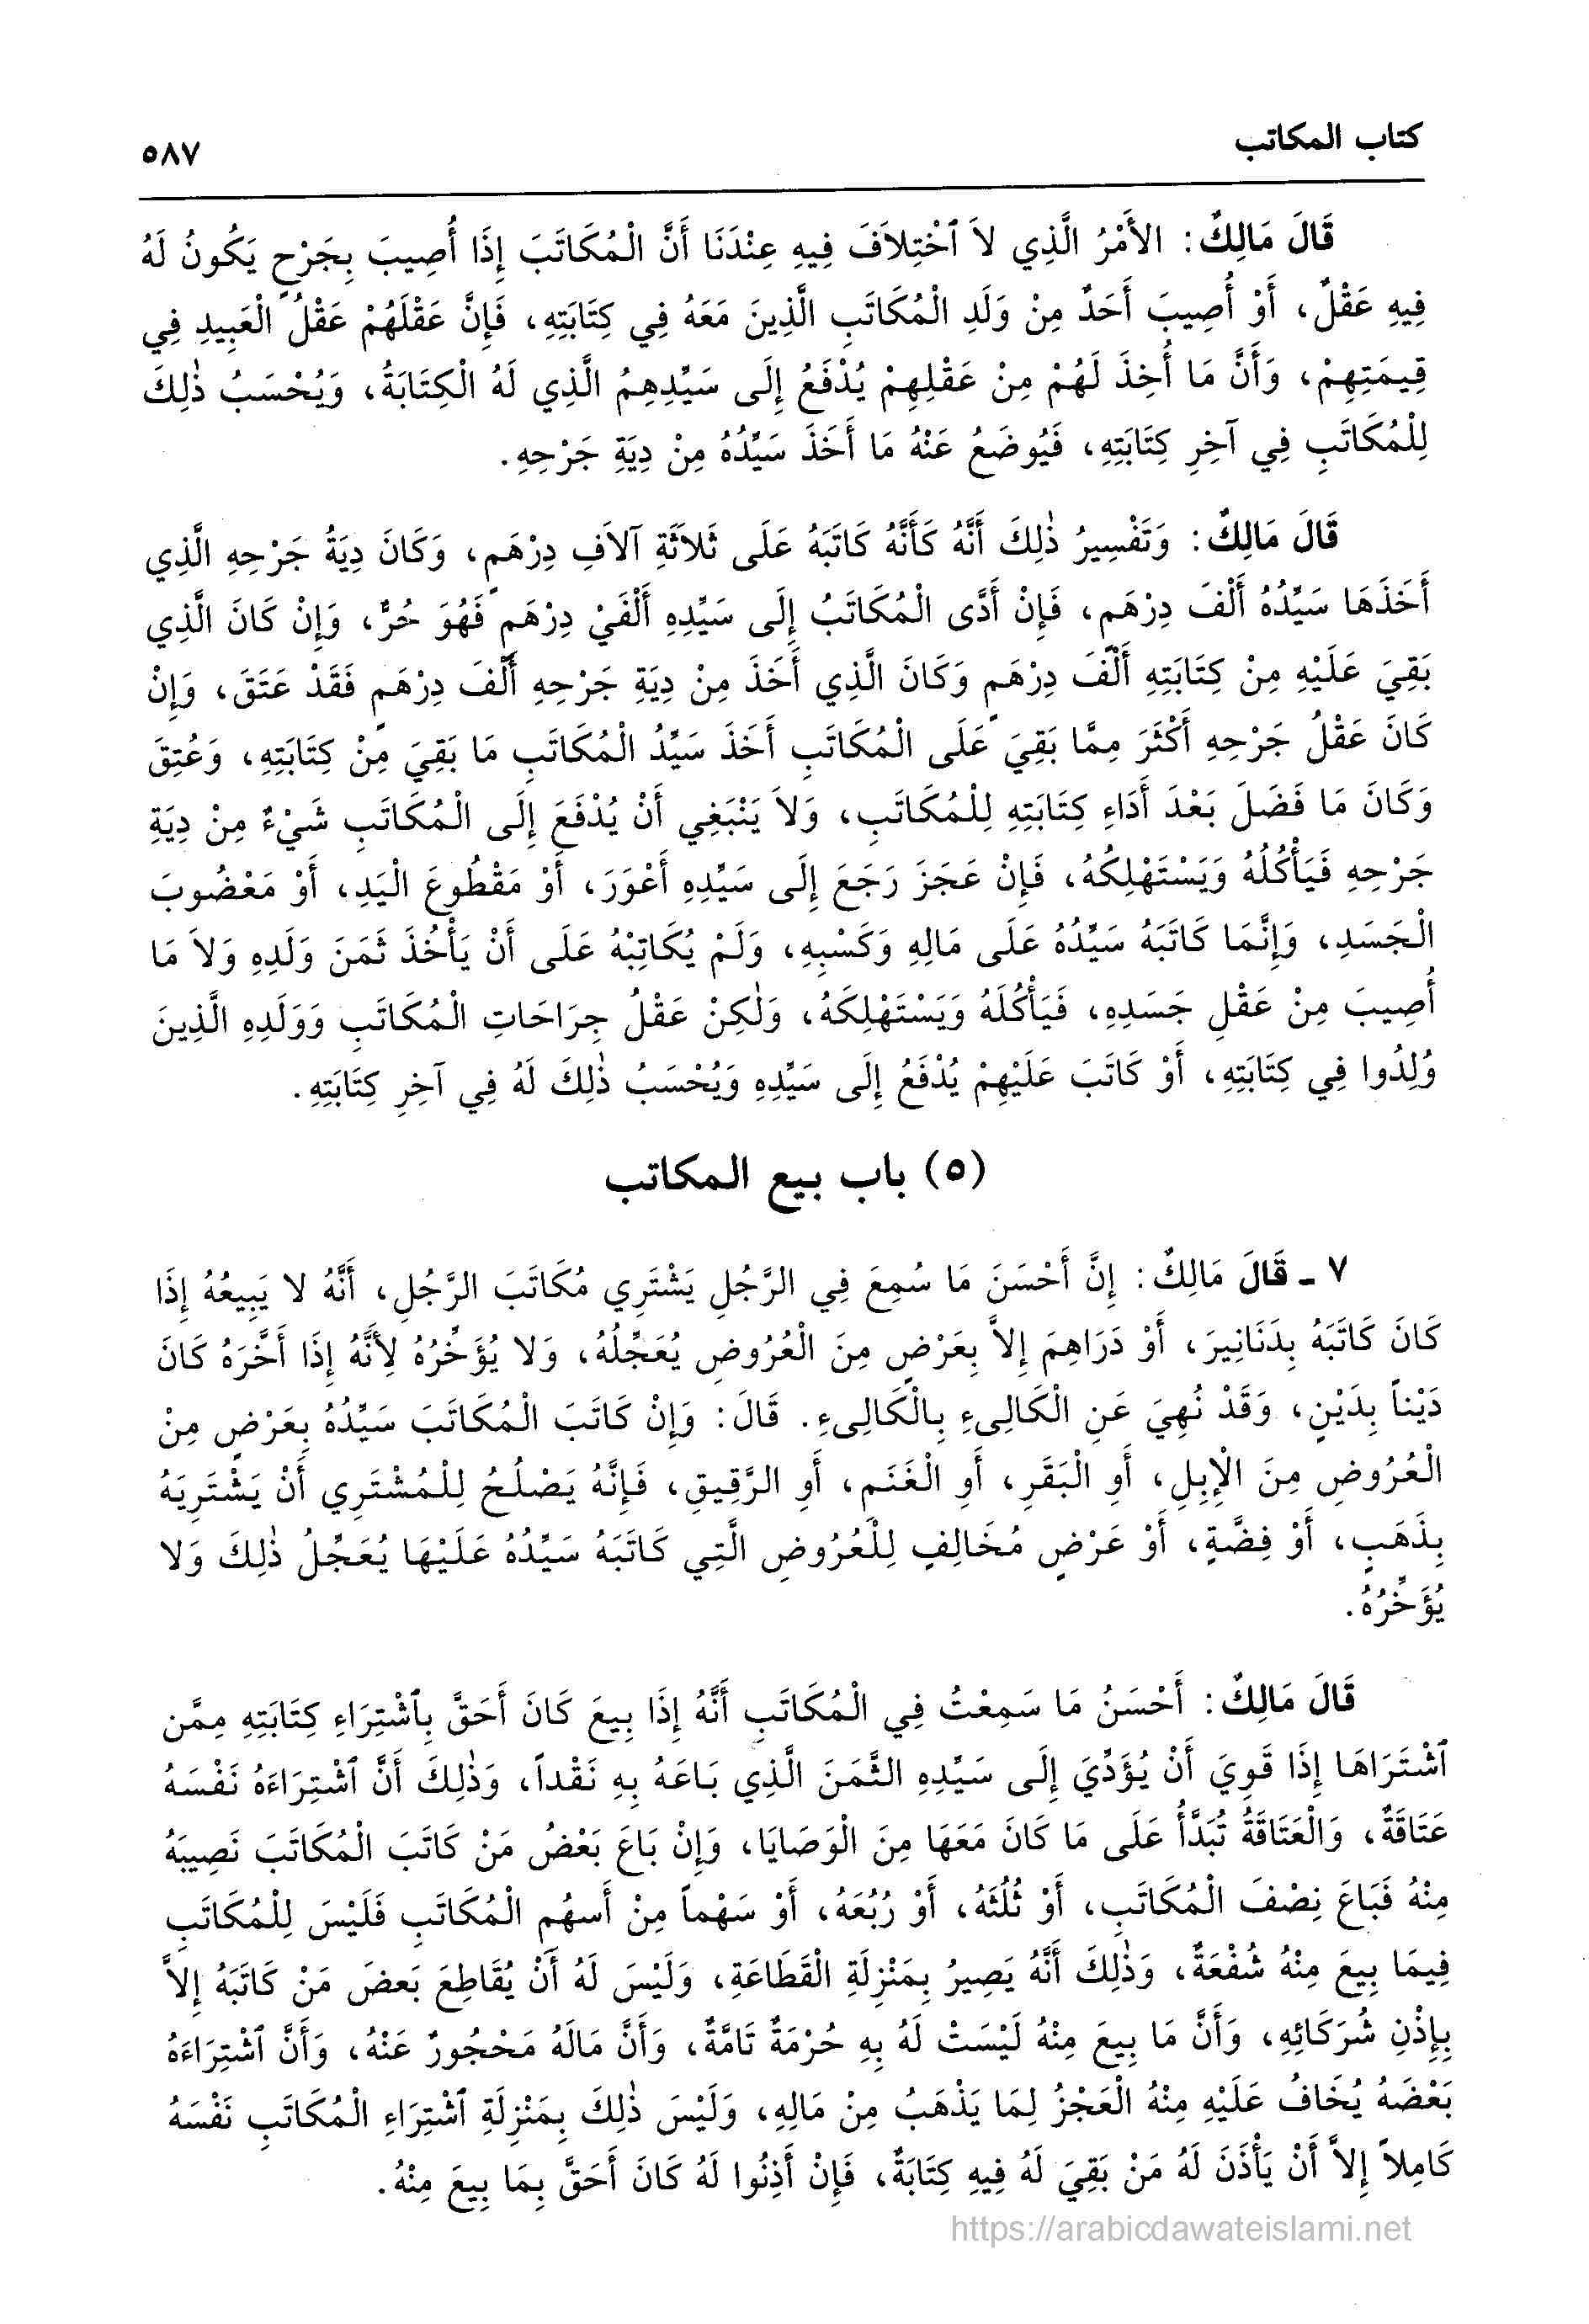 كتاب المكاتب
٥٨٧
قَالَ مَالِكٌ: الأَمْرُ الَّذِي لاَ ٱخْتِلاَفَ فِيهِ عِنْدَنَا أَنَّ الْمُكَاتَبَ إِذَا أُصِيبَ بِجَرْحٍ يَكُونُ لَهُ
فِيهِ عَقْلٌ، أَوْ أُصِيبَ أَحَدٌ مِنْ وَلَدِ الْمُكَاتَبِ الَّذِينَ مَعَهُ فِي كِتَابَتِهِ، فَإِنَّ عَقْلَهُمْ عَقْلُ الْعَبِيدِ فِي
قِيمَتِهِمْ، وَأَنَّ مَا أُخِذَ لَهُمْ مِنْ عَقْلِهِمْ يُدْفَعُ إِلَى سَيِّدِهِمُ الَّذِي لَهُ الْكِتَابَةُ، وَيُحْسَبُ ذٰلِكَ
لِلْمُكَاتَبِ فِي آخِرِ كِتَابَتِهِ، فَيُوضَعُ عَنْهُ مَا أَخَذَ سَيِّدُهُ مِنْ دِيَةِ جَرْحِهِ.
قَالَ مَالِكٌ: وَتَفْسِيرُ ذٰلِكَ أَنَّهُ كَأَنَّهُ كَاتَبَهُ عَلَى ثَلاَثَةِ آلاَفِ دِرْهَمٍ، وَكَانَ دِيَةُ جَرْحِهِ الَّذِي
أَخَذَهَا سَيِّدُهُ أَلْفَ دِرْهَمٍ، فَإِنْ أَدَّى الْمُكَاتَبُ إِلَى سَيِّدِهِ أَلْفَيْ دِرْهَمٍ فَهُوَ حُرٌّ، وَإِنْ كَانَ الَّذِي
بَقِيَ عَلَيْهِ مِنْ كِتَابَتِهِ أَلْفَ دِرْهَمٍ وَكَانَ الَّذِي أَخَذَ مِنْ دِيَةِ جَرْحِهِ أَلْفَ دِرْهَمٍ فَقَدْ عَتَقَ، وَإِنْ
كَانَ عَقْلُ جَرْحِهِ أَكْثَرَ مِمَّا بَقِيَ عَلَى الْمُكَاتَبِ أَخَذَ سَيِّدُ الْمُكَاتَبِ مَا بَقِيَ مِنْ كِتَابَتِهِ، وَعُتِقَ
وَكَانَ مَا فَضَلَ بَعْدَ أَدَاءِ كِتَابَتِهِ لِلْمُكَاتَبِ، وَلاَ يَنْبَغِي أَنْ يُدْفَعَ إِلَى الْمُكَاتَبِ شَيْءٌ مِنْ دِيَةِ
جَرْحِهِ فَيَأْكُلُهُ وَيَسْتَهْلِكُهُ، فَإِنْ عَجَزَ رَجَعَ إِلَى سَيِّدِهِ أَعْوَرَ، أَوْ مَقْطُوعَ الْيَدِ، أَوْ مَعْضُوبَ
الْجَسَدِ، وَإِنَّمَا كَاتَبَهُ سَيِّدُهُ عَلَى مَالِهِ وَكَسْبِهِ، وَلَمْ يُكَاتِبْهُ عَلَى أَنْ يَأْخُذَ ثَمَنَ وَلَدِهِ وَلاَ مَا
أُصِيبَ مِنْ عَقْلِ جَسَدِهِ، فَيَأْكُلَهُ وَيَسْتَهْلِكَهُ، وَلٰكِنْ عَقْلُ جِرَاحَاتِ الْمُكَاتَبِ وَوَلَدِهِ الَّذِينَ
وُلِدُوا فِي كِتَابَتِهِ، أَوْ كَاتَبَ عَلَيْهِمْ يُدْفَعُ إِلَى سَيِّدِهِ وَيُحْسَبُ ذٰلِكَ لَهُ فِي آخِرِ كِتَابَتِهِ.
(٥) باب بيع المكاتب
٧ ـ قَالَ مَالِكٌ: إِنَّ أَحْسَنَ مَا سُمِعَ فِي الرَّجُلِ يَشْتَرِي مُكَاتَبَ الرَّجُلِ، أَنَّهُ لا يَبِيعُهُ إِذَا
كَانَ كَاتَبَهُ بِدَنَانِيرَ، أَوْ دَرَاهِمَ إِلاَّ بِعَرْضٍ مِنَ الْعُرُوضِ يُعَجِّلُهُ، وَلا يُؤَخِّرُهُ لِأَنَّهُ إِذَا أَخَّرَهُ كَانَ
دَيْناً بِدَيْنٍ، وَقَدْ نُهِيَ عَنِ الْكَالِىءِ بِالْكَالِىءِ. قَالَ: وَإِنْ كَاتَبَ الْمُكَاتَبَ سَيِّدُهُ بِعَرْضٍ مِنْ
الْعُرُوضِ مِنَ الْإِبِلِ، أَوِ الْبَقَرِ، أَوِ الْغَنَمِ، أَوِ الرَّقِيقِ، فَإِنَّهُ يَصْلُحُ لِلْمُشْتَرِي أَنْ يَشْتَرِيَهُ
بِذَهَبٍ، أَوْ فِضَّةٍ، أَوْ عَرْضٍ مُخَالِفٍ لِلْعُرُوضِ الَّتِي كَاتَبَهُ سَيِّدُهُ عَلَيْهَا يُعَجِّلُ ذٰلِكَ وَلا
يُؤَخِّرُهُ.
قَالَ مَالِكٌ: أَحْسَنُ مَا سَمِعْتُ فِي الْمُكَاتَبِ أَنَّهُ إِذَا بِيعَ كَانَ أَحَقَّ بِٱشْتِرَاءِ كِتَابَتِهِ مِمَّن
ٱشْتَرَاهَا إِذَا قَوِيَ أَنْ يُؤَدِّيَ إِلَى سَيِّدِهِ الثَّمَنَ الَّذِي بَاعَهُ بِهِ نَقْداً، وَذٰلِكَ أَنَّ ٱشْتِرَاءَهُ نَفْسَهُ
عَتَاقَةٌ، وَالْعَتَاقَةُ تُبَدَّأُ عَلَى مَا كَانَ مَعَهَا مِنَ الْوَصَايَا، وَإِنْ بَاعَ بَعْضُ مَنْ كَاتَبَ الْمُكَاتَبَ نَصِيبَهُ
مِنْهُ فَبَاعَ نِصْفَ الْمُكَاتَبِ، أَوْ ثُلُثَهُ، أَوْ رُبُعَهُ، أَوْ سَهْماً مِنْ أَسهُمِ الْمُكَاتَبِ فَلَيْسَ لِلْمُكَاتَبِ
فِيمَا بِيعَ مِنْهُ شُفْعَةٌ، وَذٰلِكَ أَنَّهُ يَصِيرُ بِمَنْزِلَةِ الْقَطَاعَةِ، وَلَيْسَ لَهُ أَنْ يُقَاطِعَ بَعضَ مَنْ كَاتَبَهُ إِلاَّ
بِإِذْنِ شُرَكَائِهِ، وَأَنَّ مَا بِيعَ مِنْهُ لَيْسَتْ لَهُ بِهِ حُرْمَةٌ تَامَّةٌ، وَأَنَّ مَالَهُ مَحْجُورٌ عَنْهُ، وَأَنَّ ٱشْتِرَاءَهُ
بَعْضَهُ يُخَافُ عَلَيْهِ مِنْهُ الْعَجْزُ لِمَا يَذْهَبُ مِنْ مَالِهِ، وَلَيْسَ ذٰلِكَ بِمَنْزِلَةِ ٱشْتِرَاءِ الْمُكَاتَبِ نَفْسَهُ
كَامِلاً إِلاَّ أَنْ يَأْذَنَ لَهُ مَنْ بَقِيَ لَهُ فِيهِ كِتَابَةٌ، فَإِنْ أَذِنُوا لَهُ كَانَ أَحَقَّ بِمَا بِيعَ مِنْهُ.
https://arabicdawateislami.net